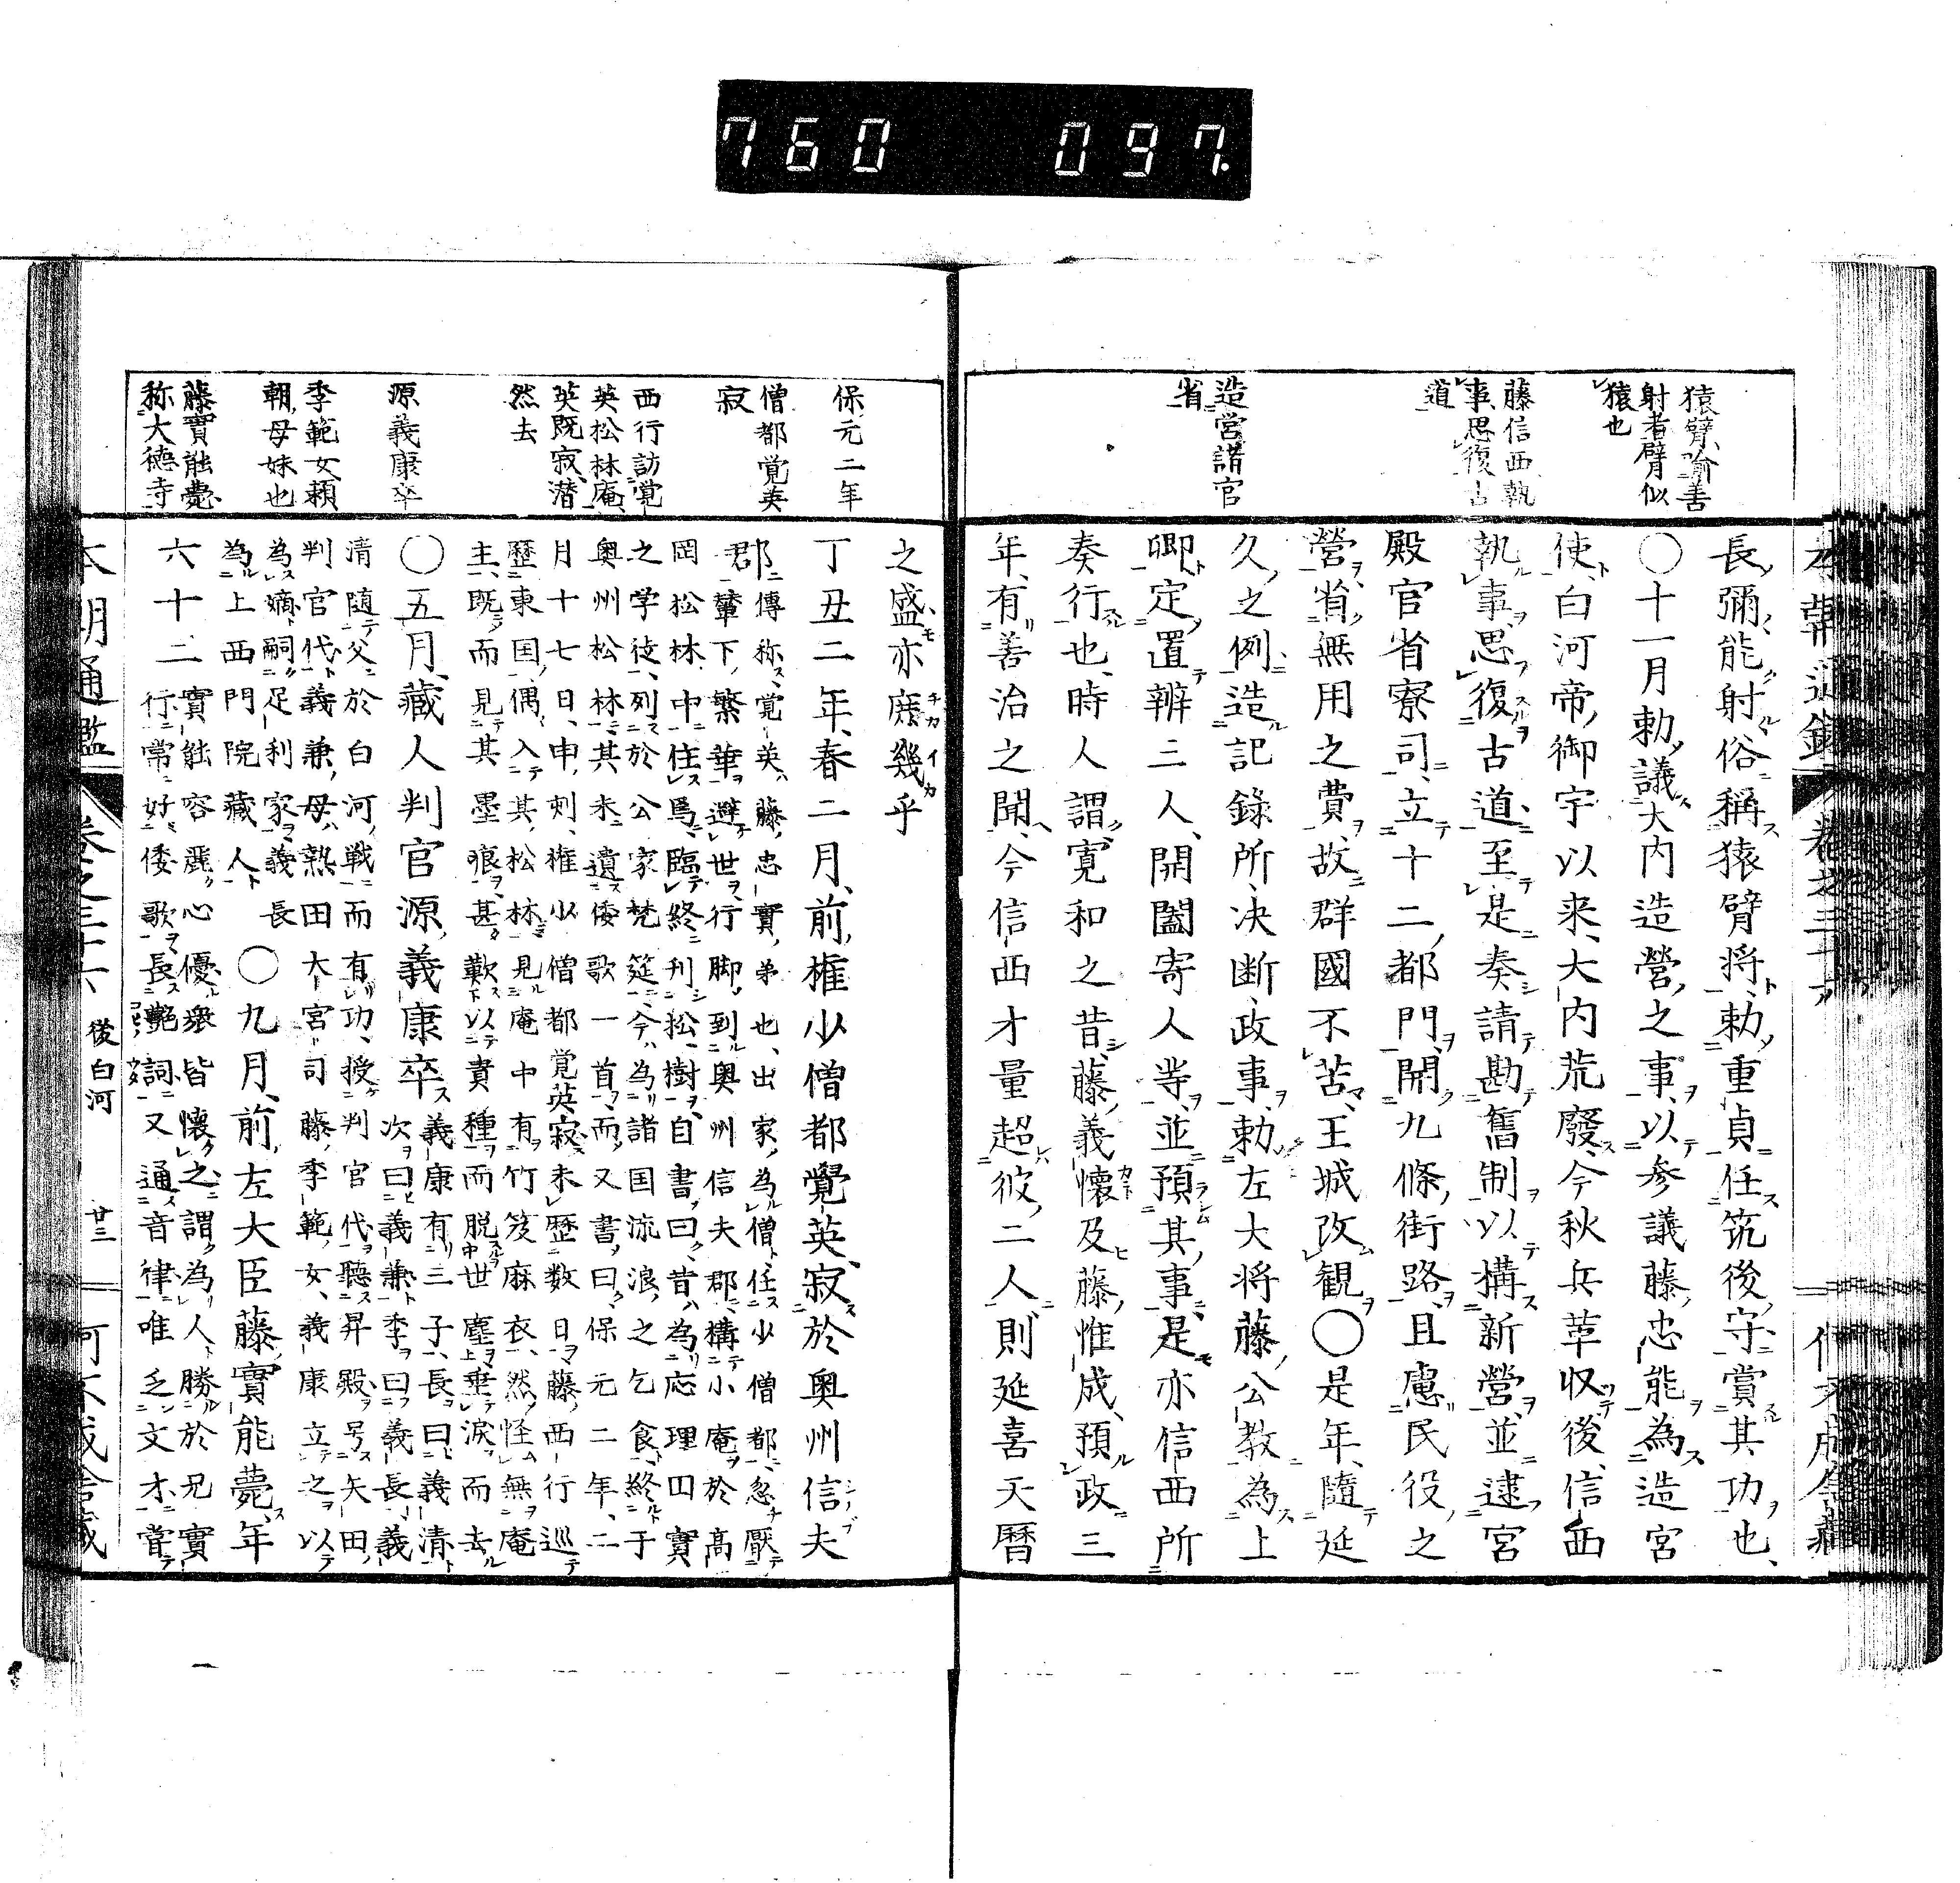 760 097.
猿臂喻善
射者臂似
猿也
藤信西執
事思復古
道
造営諸官
省
長彌能射俗稱猿臂将勅重貞任筑後守賞其功也
〇十一月勅議大内造營之事以参議藤忠能為造宮
使白河帝御宇以来大内荒廢今秋兵革収後信西
執事思復古道至是奏請勘舊制以構新營並逮宮
殿官省寮司立十二都門開九條街路且慮民役之
營省無用之費故群國不苦王城改観〇是年隨延
久之例造記錄所决断政事勅左大将藤公教為上
卿定置辨三人開闔寄人等並預其事是亦信西所
奏行也時人謂寛和之昔藤義懐及藤惟成預政三
年有善治之聞今信西才量超彼二人則延喜天暦
保元二年
僧都覚英
寂
西行訪覚
英松林庵
英既寂潜
然去
源義康卒
季範女頼
朝母妹也
藤實能薨
称大德寺
之盛亦庶幾乎
丁丑二年春二月前権少僧都覺英寂於奥州信夫
郡傳称覚英藤忠實弟也出家為僧任少僧都忽厭
輦下繁華避世行脚到奥州信夫郡構小庵於高
岡松林中住焉臨終刊松樹自書曰昔為応理四實
之学徒列於公家梵筵今為諸国流浪之乞食終于
奥州松林其末遺倭歌一首而又書曰保元二年二
月十七日申刻権少僧都覚英寂未歴数日藤西行巡
歴東国偶入其松林見庵中有竹笈麻衣然怪無庵
主既而見其墨痕甚歎以貴種而脱世塵垂涙而去
〇五月藏人判官源義康卒義康有三子長曰義清
次曰義兼季曰義長義
清随父於白河戦而有功授判官代聽昇殿号矢田
判官代義兼母熱田大宮司藤季範女義康立之以
為嫡嗣足利家義長
為上西門院藏人〇九月前左大臣藤實能薨年
六十二實能容麗心優衆皆懐之謂為人勝於兄實
行常好倭歌長艷詞又通音律唯乏文才嘗
本朝通鑑 卷之三十六 後白河 廿三